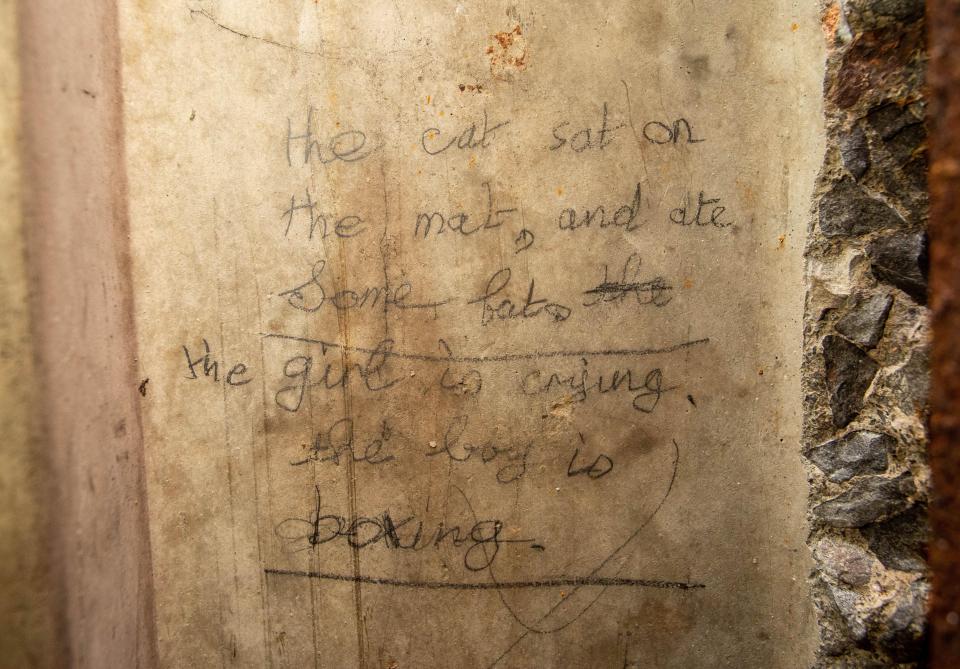 the cat sat on
the mat, and ate
Some bats the
the girl is crying.
the boy is
boxing.